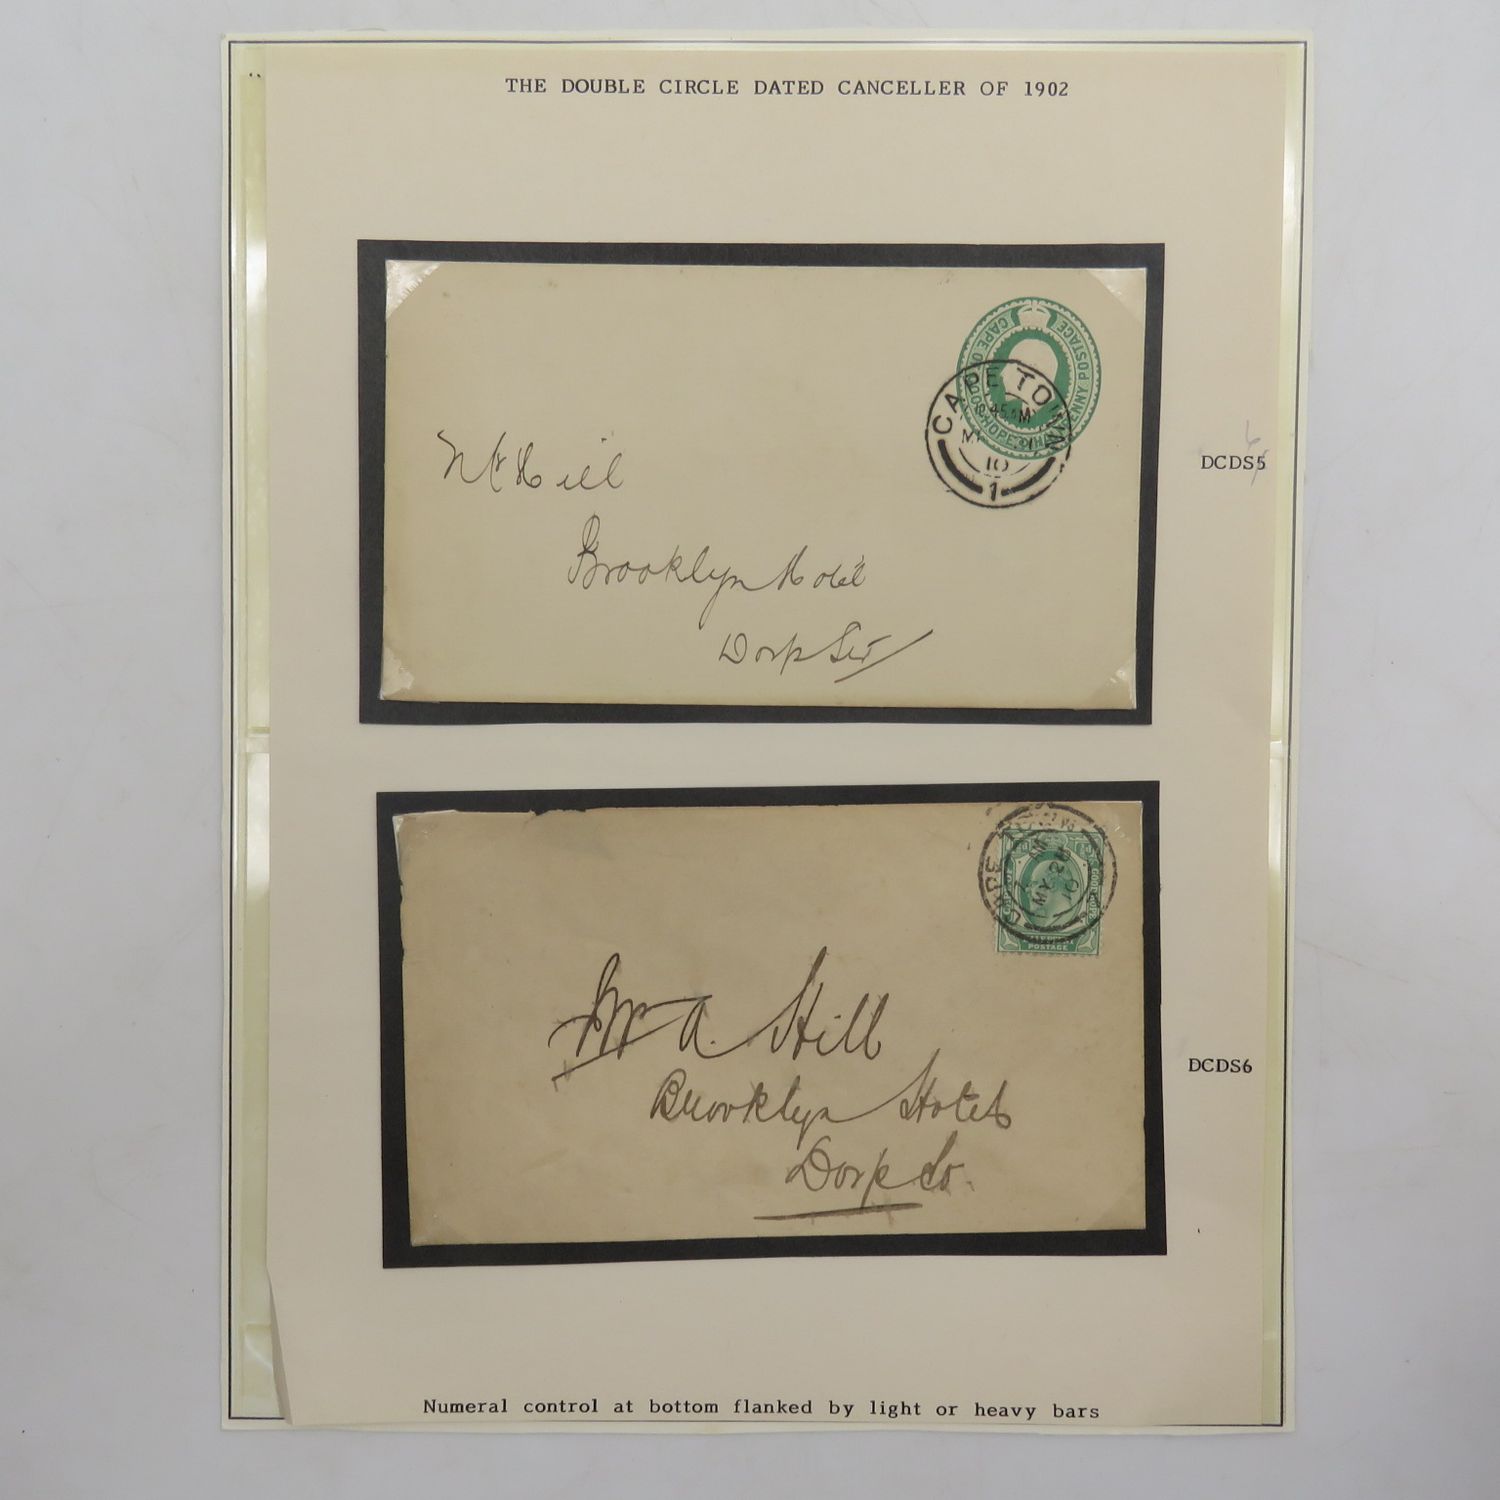 THE DOUBLE CIRCLE DATED CANCELLER OF 1902
CAPE OF GOOD HOPE HALFPENNY POSTAGE
CAPE TOWN
MY 31
10
1
Mr Hill
Brooklyn Hotel
Dorp Str
DCDS5
6
CAPE
MY 28
10
POSTAGE
Mr A. Hill
Brooklyn Hotel
Dorp St.
DCDS6
Numeral control at bottom flanked by light or heavy bars